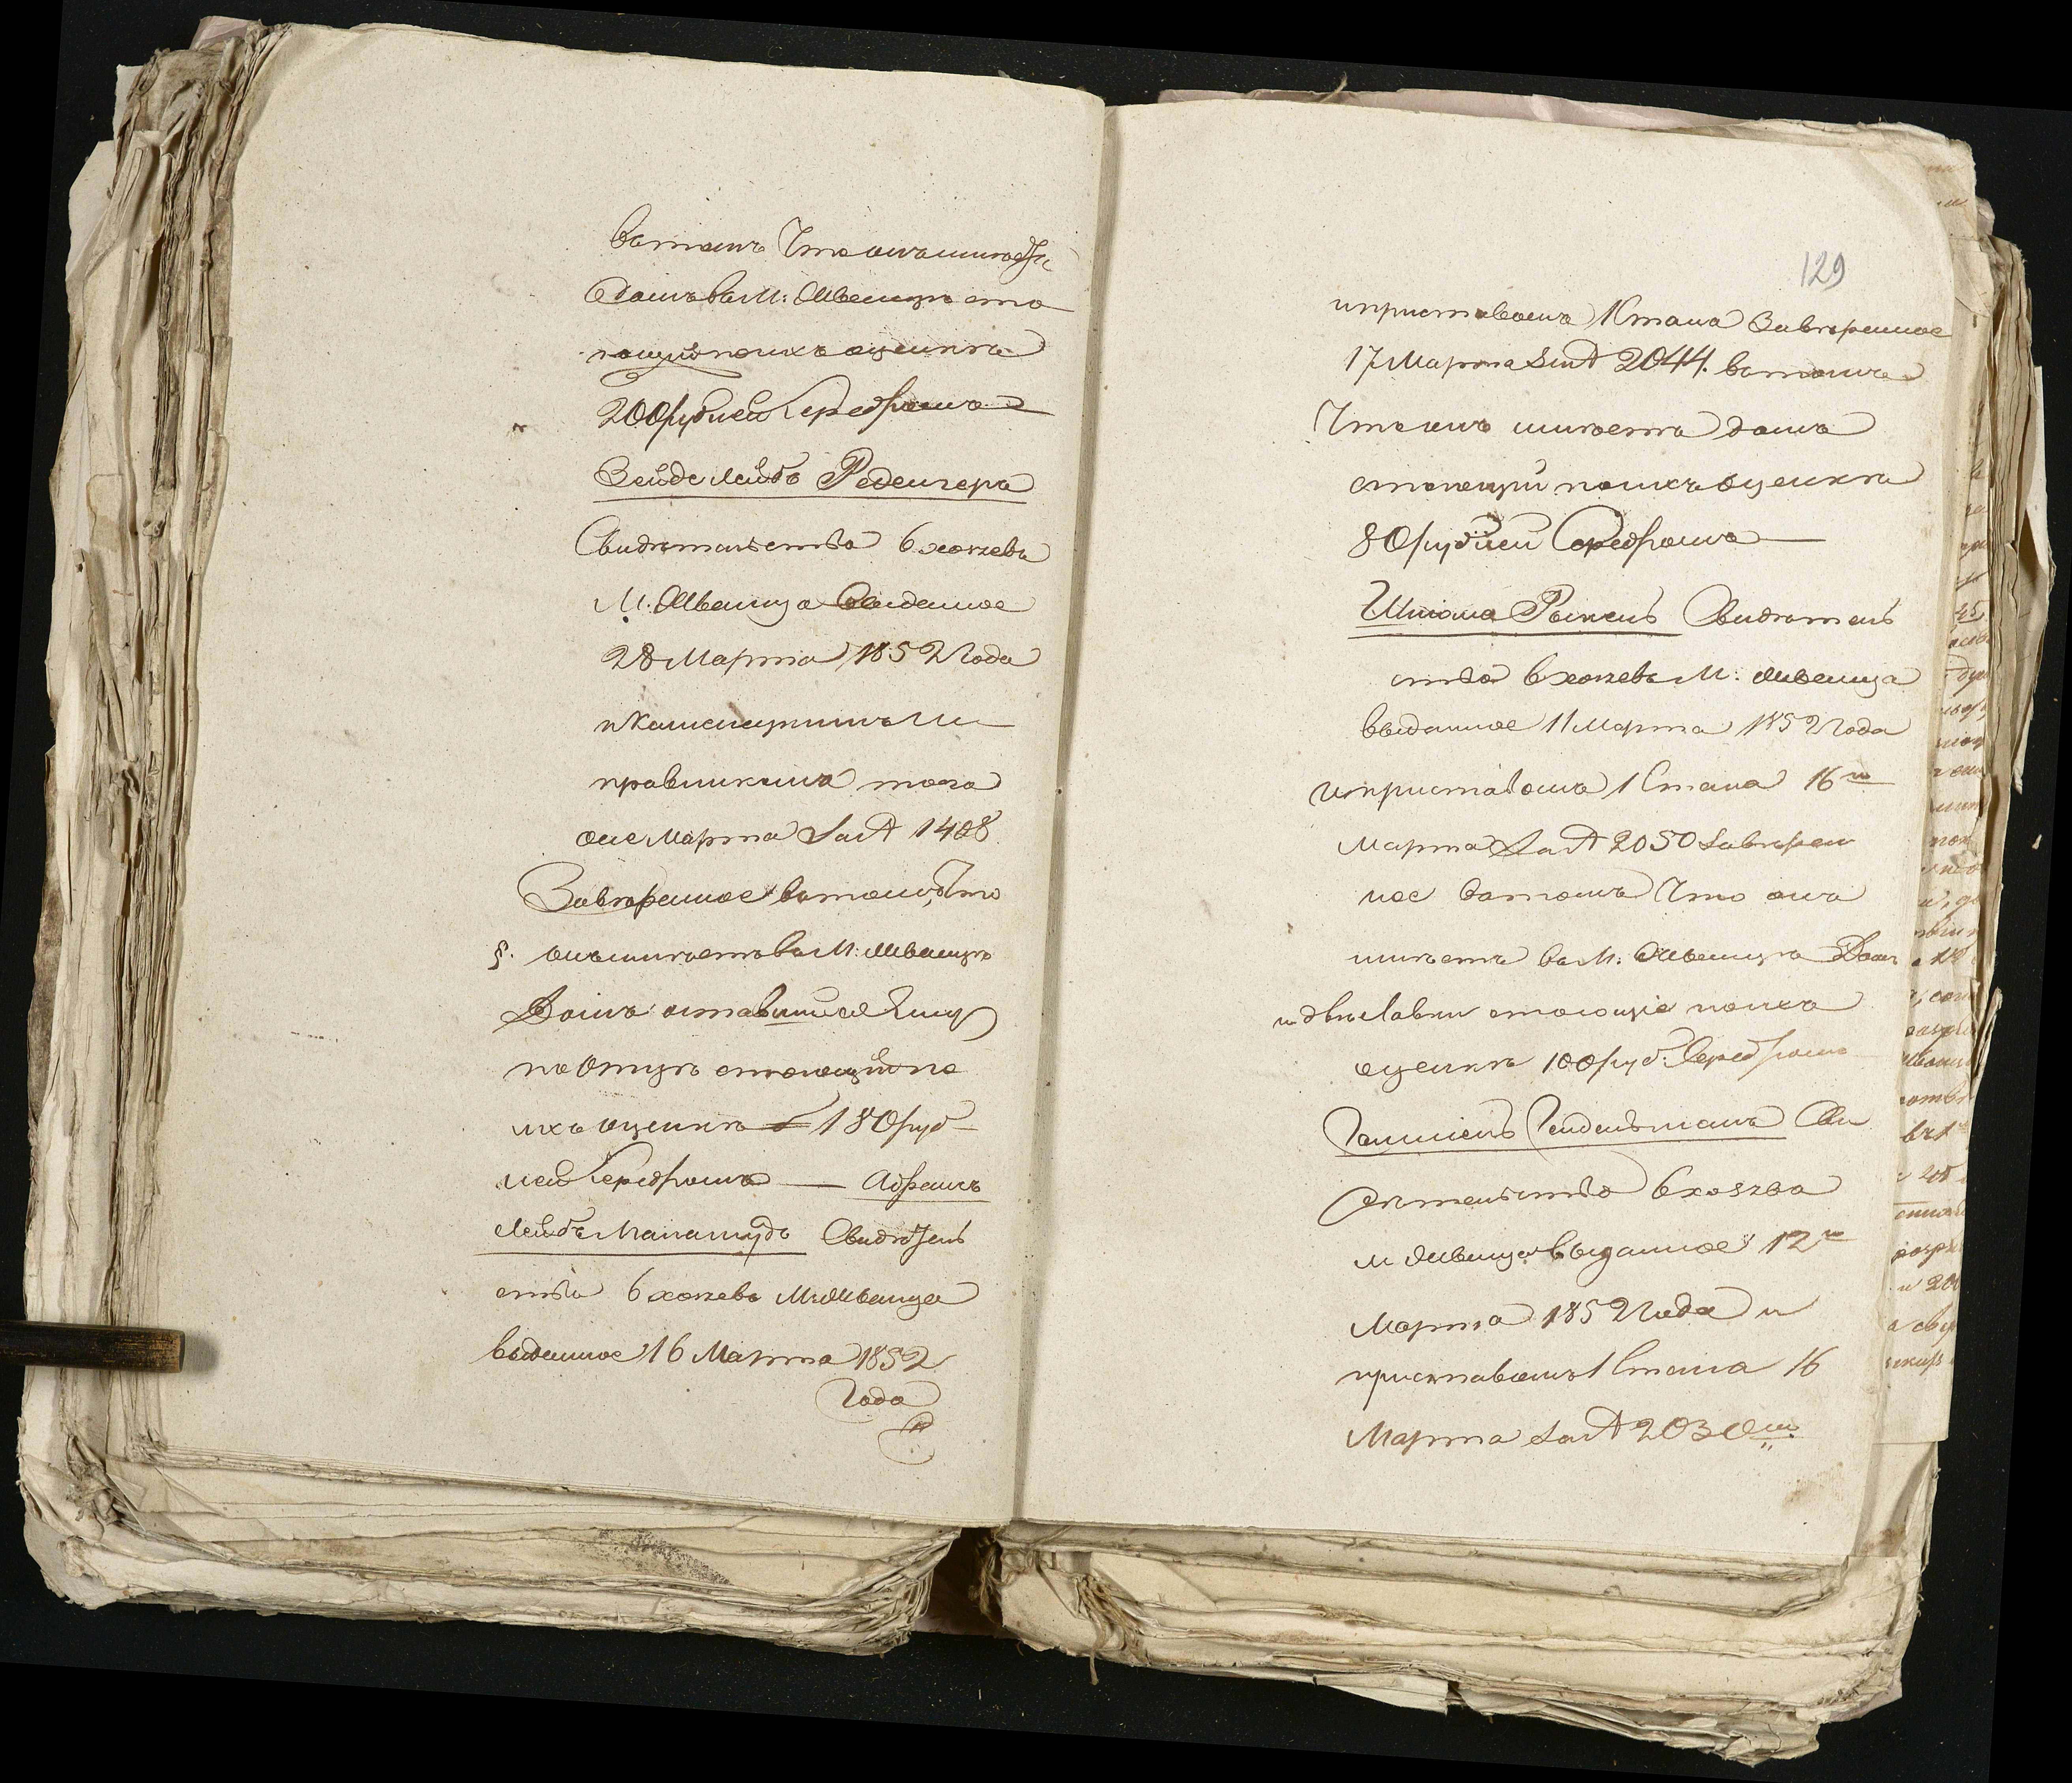 въ томъ что онъ имѣетъ
домъ въ М: Жванцѣ сто
ющій по ихъ оценкѣ
200 рублей Серебромъ
Зейде Лейбъ Редингера
Свидѣтельство 6 хозяевъ
М. Жванца выданное
28 Марта 1852 года
и
правникомъ того
же Марта за № 1408
Завѣренное въ томъ, что
§. онъ имѣетъ въ М: Жванцѣ
Домъ оставшійся ему
по Отцѣ стоющій по
ихъ оценкѣ 180 руб
лей Серебромъ — Абрамъ
Лейбъ Свидѣтель
ство 6 хозяевъ М: Жванца
выданное 16 Марта 1852
года
129
и приставомъ 1 Стана Завѣренное
17 Марта за № 2044. въ томъ
Что онъ имѣетъ домъ
стоющій по ихъ оценкѣ
80 рублей Серебромъ
Свидѣтель
ство 6 хозяевъ М: Жванца
выданное 11 Марта 1852 года
и приставомъ 1 Стана 16го
Марта за № 2050 завѣрен
ное въ томъ что онъ
имѣетъ въ М: Жванцѣ Домъ
и двѣ лавки стоющіе по ихъ
оценкѣ 100 руб: Серебромъ
Гендельманъ Сви
дѣтельство 6 хозяевъ
М Жванца выданное 12го
Марта 1852 года и
приставомъ 1 Стана 16
Марта за № 2030мъ